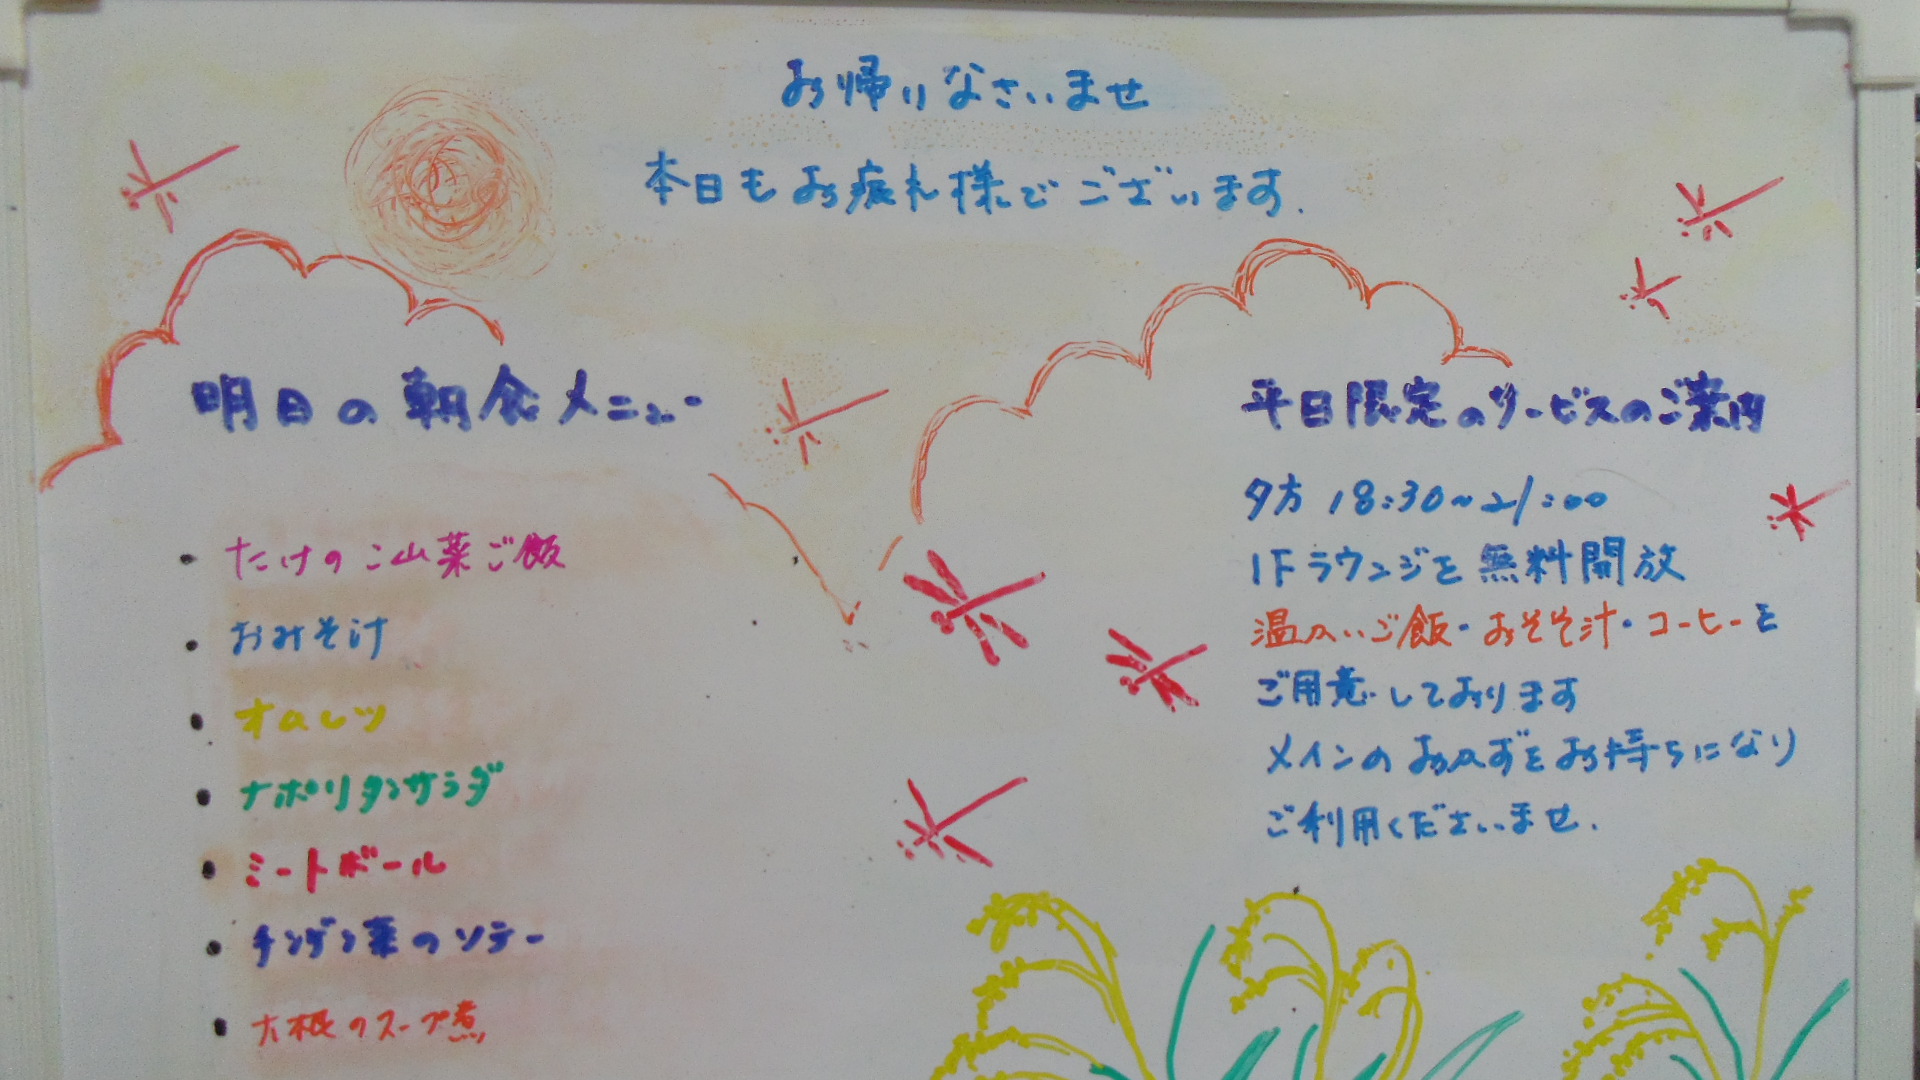 お帰りなさいませ
本日もお疲れ様でございます.
明日の朝食メニュー
・たけのこ山菜ご飯
・おみそ汁
・オムレツ
・ナポリタンサラダ
・ミートボール
・チンゲン菜のソテー
・大根のスープ煮
平日限定のサービスのご案内
夕方 18:30~21:00
1Fラウンジを無料開放
温かいご飯・おそそ汁・コーヒーを
ご用意しております
メインのおかずをお持ちになり
ご利用くださいませ.